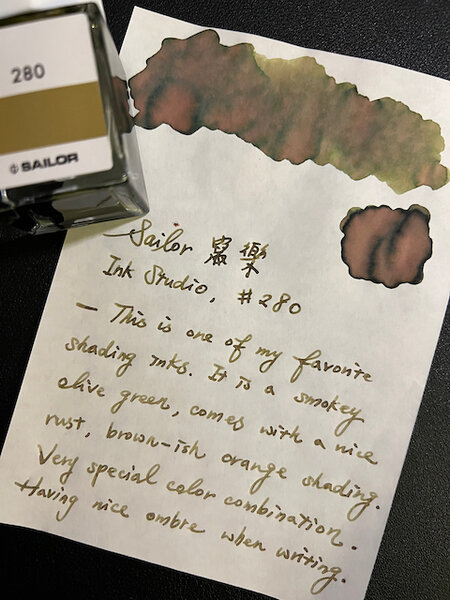 280
SAILOR
Sailor 寫樂
Ink Studio, #280
— This is one of my favorite
shading inks. It is a smokey
olive green, comes with a nice
rust, brown-ish orange shading.
Very special color combination.
Having nice ombre when writing.